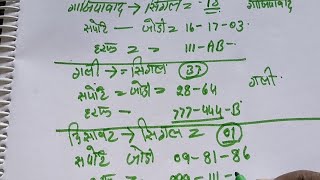 गाजियाबाद → सिंगल = 18 गाजियाबाद
सपोर्ट — जोड़ी = 16-17-03.
हरूफ = = 111-AB-
गली → = सिंगल (37)
सपोर्ट = जोड़ी = 28-64 गली.
हरूफ - 777-444-B
दिसावर → सिंगल = (01)
सपोर्ट जोड़ी 09-81-86